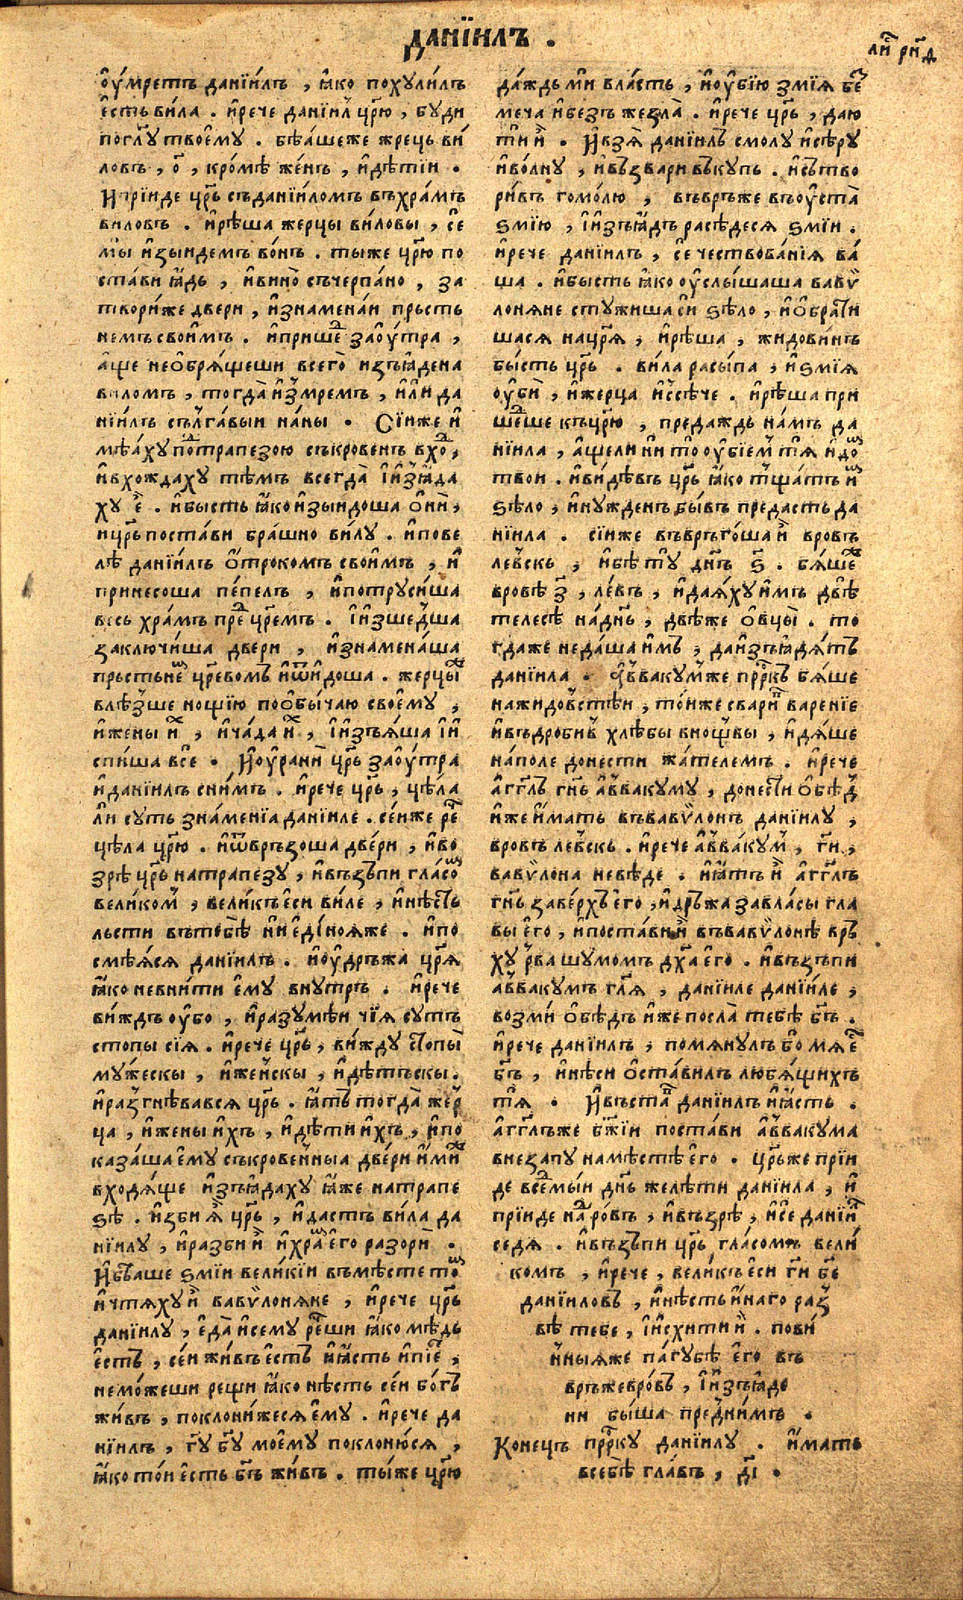 данїилъ .
ли́ рн҃д
оу҆́мретъ данїи́лъ , ꙗ҆́ко похули́лъ
є҆́сть ви́ла . и҆рече данїи́лъ цр҃ю , буди
погл҃у твоє҆му . бѣа́шеже жрець ви́
ловъ , о҃ , кро́мѣ же́нъ , и҆дѣ́тїи .
И҆прїиде цр҃ь съданїи́ломъ въхра́мъ
виловъ . и҆рѣ́ша жерцы ви́ловы , се
мы̀ и҆зы́идемъ во́нъ . тыже цр҃ю по
ста́ви ꙗ҆́дь , и҆вино̀ съчерпа́но , за
твори́же двери , и҆знамена́и прьсть
немъ свои҆́мъ . и҆прише́дъ зао҆у́тра ,
а҆́ще нео҆бря́щеши всего̀ и҆зъꙗ҆́дена
виломъ , тогда̀ и҆́змремъ , и҆̀ли да
нїи́лъ съл̾га́выи на́ны . Сїиже и҆
мѣа́ху по́дтрапезою съкрове́нъ вхо́д ,
и҆вхождаху тѣ́мъ всегда̀ ї҆и҆зꙗ҆́да
ху є҆̀ . и҆бысть ꙗ҆́коизы́идоша о҆ни ,
и҆цр҃ь поста́ви бра́шно ви́лу . и҆пове
лѣ̀ данїи́лъ о҆́трокомъ свои҆́мъ , и҆
принесоша пе́пелъ , и҆потруси́ша
весь хра́мъ пре́д цр҃емъ . ї҆и҆зше́дша
заключи́ша двери , и҆знамена́ша
прьстьнемъ цр҃евомъ и҆ѿи҆́доша . жерцы́же
влѣ́зше нощїю поо҆бы́чаю своє҆му ,
и҆жены и҆х , и҆ча́да и҆х , ї҆и҆зъꙗ́ша ї҆и҆
спи́ша всѐ . И҆оу҆ра́ни цр҃ь зао҆у́тра
и҆данїилъ сни́мъ . и҆рече цр҃ь , цѣ́ла
ли суть зна́менїа данїиле . се́иже реч
цѣ́ла цр҃ю . и҆ѿврьзоша две́ри , и҆во
зрѣ̀ цр҃ь натрапезу , и҆възъпи гла́сом
вели́ком , вели́къ є҆си ви́ле , и҆нѣ́сть
льсти вътебѣ̀ ни є҆ди́ноꙗже . и҆по
смѣꙗ́ся данїилъ . и҆оу҆дръжа̀ цр҃я
ꙗ҆́ко невни́ти є҆му вну́трь . и҆рече
ви́ждь оу҆́бо , и҆разумѣ́и чїꙗ̀ суть
стопы сїꙗ . и҆рече цр҃ь , ви́жду стопы̀
му́жескы , и҆же́нскы , и҆дѣ́тьскы .
и҆раз̾гнѣ́вався цр҃ь . ꙗ҆́тъ тогда̀ жер
ца , и҆жены и҆́хъ , и҆дѣти и҆́хъ , и҆по
каза́ша є҆му съкрове́нныа две́ри и҆́миже
входя́ще и҆зъꙗ҆даху ꙗ҆́же натрапе
зѣ . и҆зби ꙗ҆̀ цр҃ь , и҆да́стъ ви́ла да
нїилу , и҆разби и҆ и҆хра́м є҆го разорѝ .
И҆бѣаше ѕмїи вели́кїи въмѣсте то́м
и҆чтя́ху и҆ вавѷлоняне , и҆рече цр҃ь
данїилу , є҆да̀ и҆сему рече́ши ꙗ҆́ко мѣ́дь
є҆сть , се́и жи́въ є҆сть и҆ꙗ҆́сть и҆пїе́т ,
немо́жеши рещи ꙗ҆́ко нѣсть се́и бо́гъ
жи́въ , поклони́жеся є҆му . и҆рече да
нїилъ , гу҃ бу҃ моє҆му поклоню́ся ,
ꙗ҆́ко то́и є҆сть бг҃ъ жи́въ . ты́же цр҃ю
да́ждь ми вла́сть , и҆оу҆бїю змїя бе́з
меча и҆безъ жезла̀ . и҆рече цр҃ь , даю
ти и҆ . И҆взя̀ данїилъ смолу и҆сѣру
и҆во́лну , и҆възвари въкупь . и҆сътво
ри́въ гомо́лю , въврьже въоу҆ста̀
ѕмїю , ї҆и҆зъꙗ҆́дъ расѣдеся ѕмїи .
и҆рече данїилъ , се чествова́нїя ва́
ша . и҆бысть ꙗ҆́ко оу҆слы́шаша вавѷ
лоняне стужишаси ѕѣло , и҆о҆брати́
шася нацр҃я , и҆рѣ́ша , жидови́нъ
бы́сть цр҃ь . ви́ла расы́па , и҆ѕмїя
оу҆бѝ , и҆жерца и҆ссѣче . и҆рѣ́ша при
ше́дше къцр҃ю , предаждь на́мъ да
нїила , а҆́щели ни то оу҆бїе́м тя̀ и҆до́м
твои . и҆ви́дѣвъ цр҃ь ꙗ҆́ко тща́тъ им
ѕѣло , и҆нужденъ бы́въ предасть да
нїила . сїиже въврьго́ша и҆̀ вровъ
ле́вскь , и҆бѣ̀ ту дн҃ъ ѕ҃ . бя́шеже
вровѣ з҃ , ле́въ , и҆дая́ху и҆мъ двѣ̀
телесѣ на́дн҃ь , двѣ́же о҆вцы̀ . то
гдаже неда́ша и҆́мъ , даи҆зъꙗ҆дя́тъ
данїила . А҆ввакумже пр҃ркъ бя́ше
нажидовстѣи , то́иже свари́в варе́нїе
и҆въдроби́в хлѣ́бы внощвы , и҆дя́ше
на́поле донести жа́телемъ . и҆рече
а҆гг҃лъ гн҃ь а҆ввакуму , донести о҆бѣ́д
и҆же и҆мать въвавѷлонъ данїилу ,
вровъ ле́вскь . и҆рече а҆ввакум , ги҃ ,
вавѷлона невѣде . и҆ꙗ҆́тъ и҆ а҆гг҃лъ
гн҃ь заве́рхъ е҆го , и҆дръ́жа завласы гла
вы є҆го , и҆поста́ви и҆ въвавѷлонѣ врь
ху рва шумомъ дх҃а є҆го . и҆възъпи
а҆ввакумъ гл҃я , данїиле данїиле ,
возми о҆бѣ́дъ и҆́же посла̀ тебѣ бг҃ъ .
и҆рече данїилъ , помяну́лъ бо мя є҆сть
бг҃ъ , и҆нѣси о҆ста́вилъ любя́щихъ
тя̀ . И҆въста́в данїилъ и҆ꙗ҆́сть .
а҆гг҃лъже бж҃їи поста́ви а҆ввакума
внезапу намѣстѣ є҆го . цр҃ьже прїи
де все́дмыи дн҃ь желѣти данїила , и҆
прїиде на́д ро́въ , и҆възрѣ̀ , и҆се данїил
седя̀ . и҆възъпи цр҃ь гла́сомъ вели́
комъ , и҆рече , вели́къ є҆си ги҃ бе҃
данїиловъ , и҆нѣсть и҆́наго раз
вѣ тебе , ї҆и҆схити и҆ . пови́
нныꙗже па́губѣ є҆го въ
врьжевро́въ , ї҆и҆зъꙗ҆де
ни бы́ша пред̾ни́мъ .
Конець пр҃рку данїилу . и҆́мать
всебѣ̀ гла́въ , д҃і .